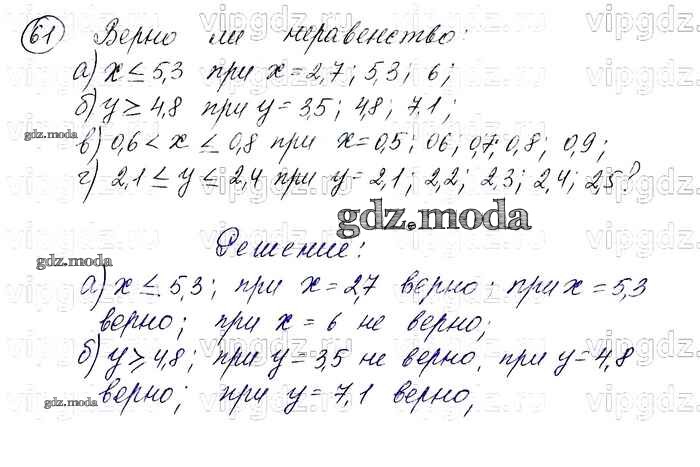 61 Верно ли неравенство:
а) x ≤ 5,3 при x = 2,7; 5,3; 6;
б) y ≥ 4,8 при y = 3,5; 4,8; 7.1;
gdz.moda
в) 0,6 < x ≤ 0,8 при x = 0,5; 06; 0,7; 0,8; 0,9;
г) 2,1 ≤ y ≤ 2,4 при y = 2,1; 2,2; 2,3; 2,4; 2,5?
gdz.moda
Решение:
gdz.moda
а) x ≤ 5,3; при x = 2,7 верно; при x = 5,3
верно; при x = 6 не верно;
б) y ≥ 4,8; при y = 3,5 не верно, при y = 4,8
gdz.moda
верно; при y = 7,1 верно,
vipgdz